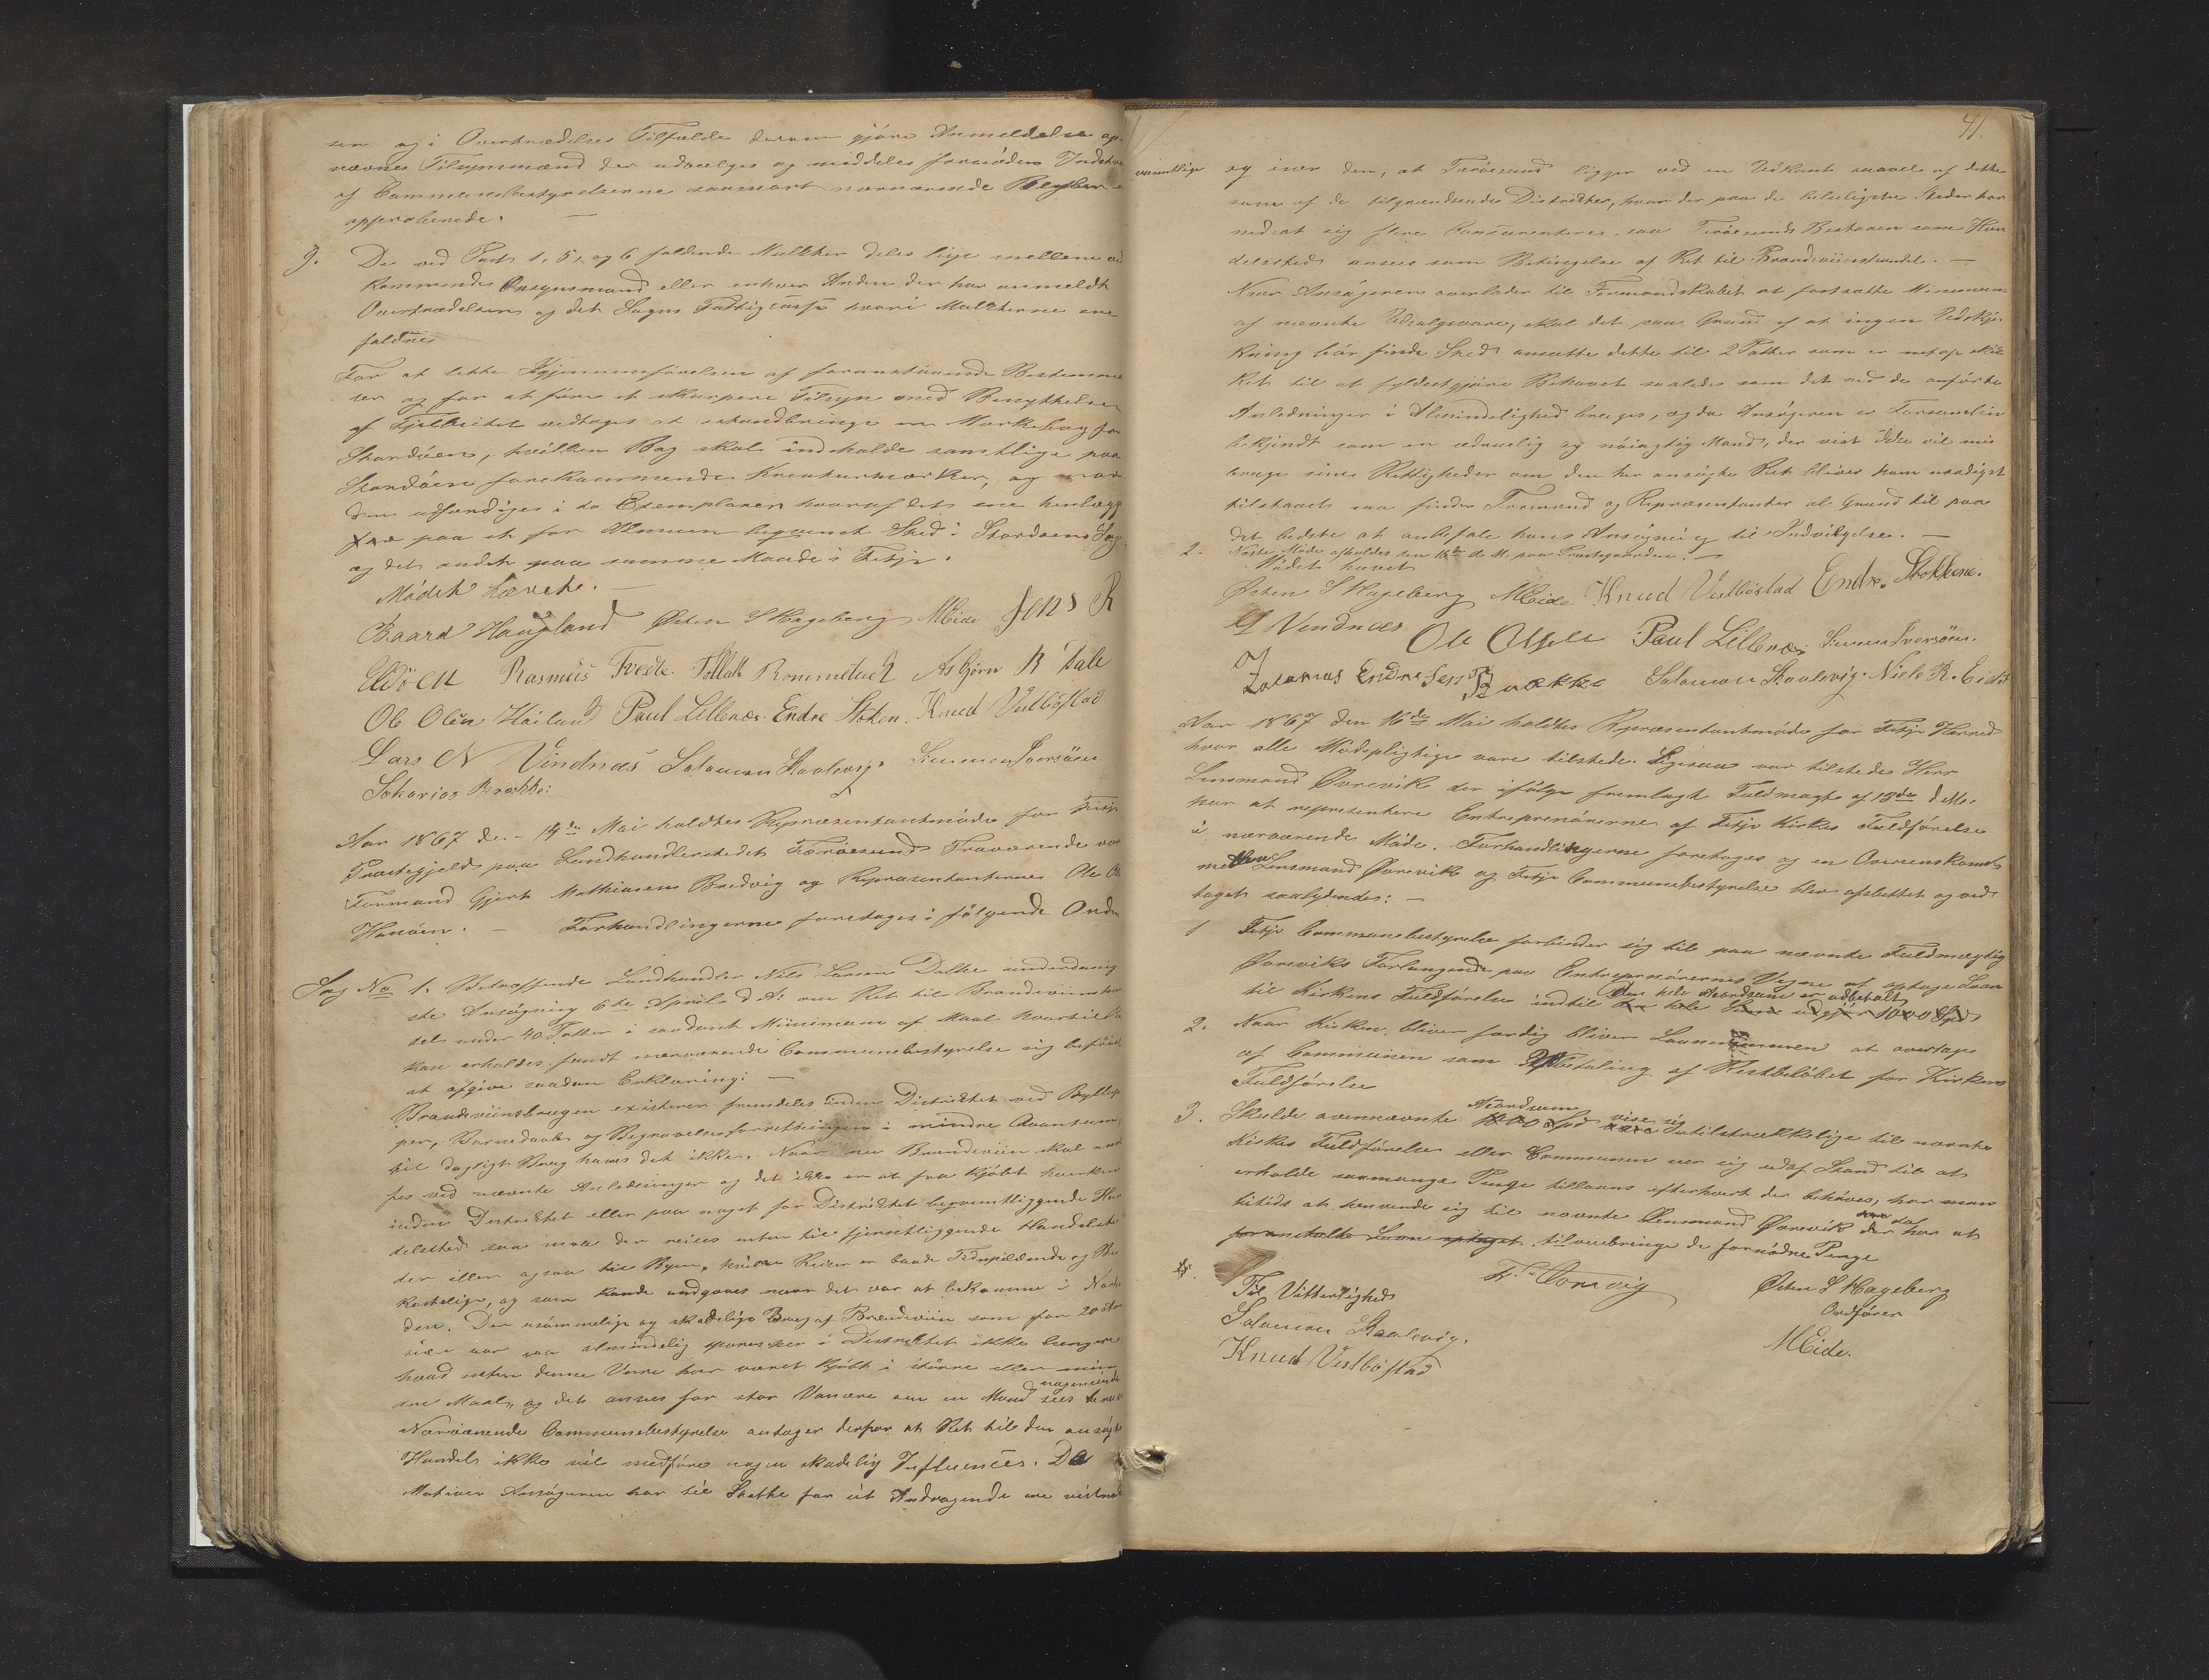 ser og i Overtrædelses Tilfælde derom gjøre Anmeldelse op-
nævnes Tilsynsmænd der udvælges og meddeles fornøden Instru
af Communebestyrelserne saasnart nærværende Regler
approberede.
9. De ved Post 1, 5, og 6 faldende Mulkter deles lige mellem ved
kommende Opsynsmand eller enhver Anden der har anmeldt
Overtrædelsen og det Sogns Fattigcasse hvori Mulkterne ere
faldne
For at lette Gjennemførelsen af foranstaaende Bestemmel
ser og for at føre et skarpere Tilsyn med Benyttelsen
af Fjeldbeitet vedtages at istandbringe en Mærkebog for
Stordøen, hvilken Bog skal indeholde samtlige paa
Stordøen forekommende Kreaturmærker, og
den udfærdiges i to Exemplarer hvoraf det ene henlægg
paa et for Almuen beqvemt Sted i Stordøens Sog
og det andet paa samme Maade i Fitje.
Mødet hævet.
Baard Haugland Østen S Hageberg MEide Jens R
Eldøen Rasmus Tvedte. Tollak Rommetvedt Asbjørn B Dale
Ole Olsen Paul Lillenæs. Endre Stoken. Knud Vestbøstad
Lars N Vindnæs Salamon Skaalevig. Simmon Iversøen
Sakarias Brække.
Aar 1867 den 14de Mai holdtes Repræsentantmøde for Fitje
Præstegjeld paa Landhandlerstedet Færøesund. Fraværende var
Formand Gjert Mathiasen Bredvig og Repræsentanterne Ole Ol
Forhandlingerne foretages i følgende Orden
Sag No 1. Betræffende Landhandler Nils Larsen Dalke
ste Ansøgning 6te April d. A. om Ret til Brændeviinshan
del under 40 Potter i saadant Minimum af Maal hvortil
kan erholdes fandt nærværende Communebestyrelse sig beføiet
at afgive saadan Erklæring:
Brændeviinsbrugen existerer fremdeles inden Districtet ved Bryllup
per, Barnedaab og Begravelsesforretninger i mindre Qvantum
til dagligt Brug haves det ikke. Naar nu Brændeviin skal
fes ved nævnte Anledninger og det ikke er at faa kjøbt hverken
inden Districtet eller paa noget for Districtet beqvemtliggende Han
delssted saa maa der reises enten til fjerntliggende Handelsste
der eller ogsaa til Byen, hvilke Reiser er baade Tidspildende og Be
kostelige, og som kunde undgaaes naar det var at bekomme i Nær
den. Den usømmelige og skadelige Brug af Brændeviin som for 20 Aar
siden var saa almindelig spores her i Districtet ikke længere
hvad enten denne Vare har været kjøbt i større eller min
nogensinde
dre Maal, og det ansees for stor Vanære om en Mand sees
Nærværende Communebestyrelse antager derfor at Ret til den ansøgte
Handel ikke vil medføre nogen skadelig Influences. De
Motiver Ansøgeren har til Støtte for sit Andragende ere

41.
væsentlige og især den, at Færøesund ligger ved en Udkant saavel af dette
som af de tilgrændsende Districter, hvor der paa de beleiligste Steder har
nedsat sig flere Concurrenter, saa Færøesunds Bestaaen som Han
delssted ansees som Betingelse af Ret til Brændeviinshandel.
Naar Ansøgeren overlader til Formandskabet at fastsætte Minimum
af nævnte Udsalgsvare, skal det paa Grund af at ingen Udskjæn
kning bør finde Sted ansætte dette til 2 Potter som er netop skik
ket til at fyldestgjøre Behovet saaledes som det ved de anførte
Anledninger i Almindelighed bruges, og da Ansøgeren er Forsamlin
bekjendt som en ædruelig og nøiagtig Mand, der vist ikke vil mis
bruge sine Rettigheder om den her ansøgte Ret bliver ham naadigst
tilstaaet saa finder Formænd og Repræsentanter al Grund til paa
det bedste at anbefale hans Ansøgning til Indvilgelse.
2. Næste Møde afholdes den 16de d. M. paa Præstegaarden.
Mødet hævet
Østen S Hageberg MEide Knud Vestbøstad Endre Stokkene.
Vindnæs Ole Olsen Paul Lillenæs Simmon Iversøen.
Zakarias Endresen Brække Salamon Skaalevig. Niels R. Eide
Aar 1867 den 16de Mai holdtes Repræsentantmøde for Fitje Herred
hvor alle Mødepligtige vare tilstede. Ligesaa var tilstede Herr
Lensmand Øvrevik der ifølge fremlagt Fuldmagt af 13de d. Ms.
har at repræsentere Entreprenørerne af Fitje Kirkes Fuldførelse
i nærværende Møde. Forhandlingerne foretages og en Overenskomst
med Lensmand Øvrevik og Fitje Communebestyrelse blev afsluttet og ved
taget saalydende:
1 Fitje Communebestyrelse forbinder sig til paa nævnte Fuldmægtig
Øvreviks Forlangende paa Entreprenørernes Vegne at optage Laan
den hele Accordsum er udbetalt
til Kirkens Fuldførelse indtil den hele Sum udgjør 1000 Spd
2. Naar Kirken bliver færdig bliver Laanesummen at overtage
af Communen som Afbetaling af Restbeløbet for Kirkens
Fuldførelse
Accordsum
3. Skulde overnævnte 1000 Spd være vise sig utilstrækkelige til nævnte
Kirkes Fuldførelse eller Communen seer sig udaf Stand til at
erholde saamange Penge tillaans efterhvert der behøves, har man
itide at henvende sig til nævnte Lensmand Øvrevik der da har at
foranstalte Laan optaget tilveiebringe de fornødne Penge
Til Vitterlighed
Salamon Skaalevig.
Knud Vestbøstad
Øvrevig
Østen S Hageberg
Ordfører
MEide.